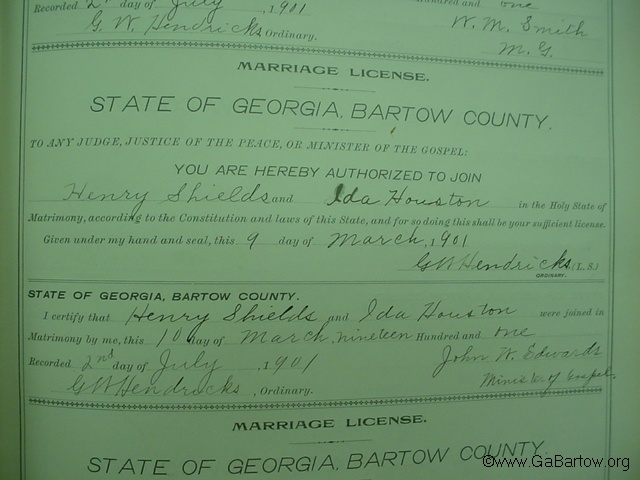 Recorded 2nd day of July 1901 Hundred and one
G. W. Hendricks, Ordinary. W. M. Smith
M. G.
MARRIAGE LICENSE.
STATE OF GEORGIA, BARTOW COUNTY.
TO ANY JUDGE, JUSTICE OF THE PEACE, OR MINISTER OF THE GOSPEL:
YOU ARE HEREBY AUTHORIZED TO JOIN
Henry Shields and Ida Houston in the Holy State of
Matrimony, according to the Constitution and laws of this State, and for so doing this shall be your sufficient license.
Given under my hand and seal, this 9 day of March, 1901
G W Hendricks (L. S.)
ORDINARY.
STATE OF GEORGIA, BARTOW COUNTY.
I certify that Henry Shields and Ida Houston were joined in
Matrimony by me, this 10 day of March, nineteen Hundred and one
Recorded 2nd day of July 1901 John W. Edwards
G W Hendricks, Ordinary. Minis of Gospel.
MARRIAGE LICENSE.
STATE OF GEORGIA, BARTOW COUNTY.
©www.GaBartow.org